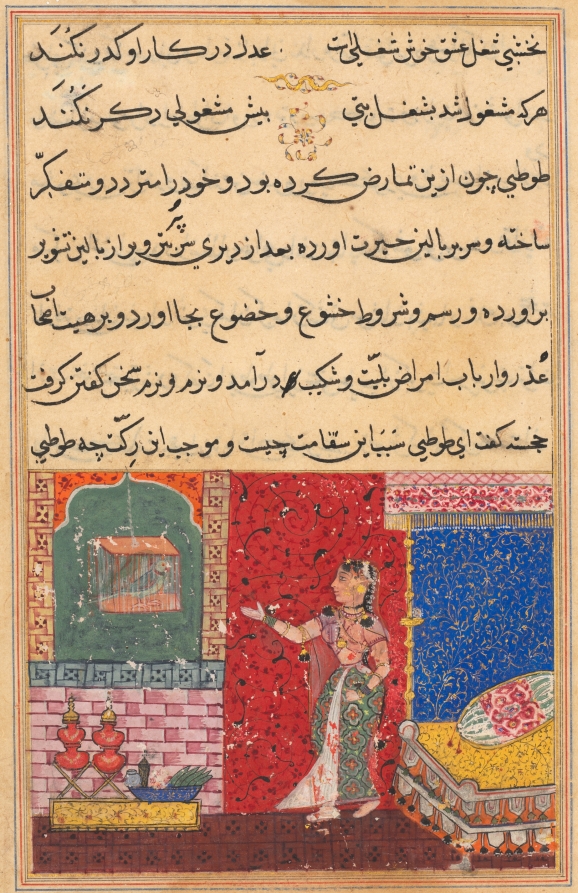 نخشبی شغل عشق خوش شغلی است عدل در کار او کدر نکند
هرکه مشغول شد بشغل بتی بیش مشغولی دکر نکند
طوطی چون ازین تمارض کرده بود و خود را متردد و متفکر
ساخته و سر بر بالین حیرت اورده بعد از دیری سر پر
براورده و رسم و شروط خشوع و خضوع بجا اورد و بر هیئت اصحاب
عذر و ارباب امراض بلیت و شکیب درآمد و نرم و نرم سخن کفتن کرفت
خجسته کفت ای طوطی سبب این سقامت چیست و موجب این رکت چه طوطی